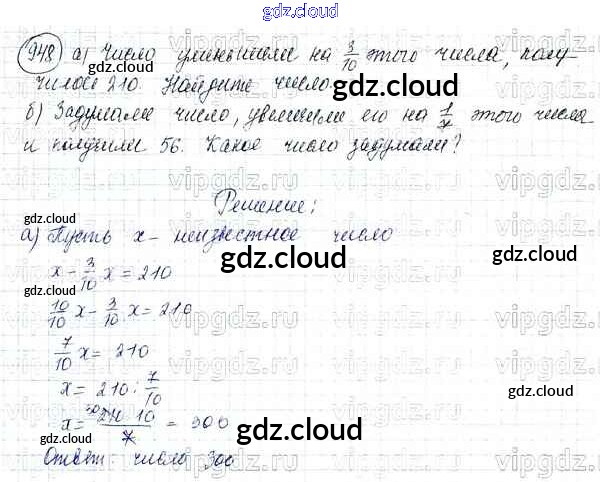 gdz.cloud
948) а) Число уменьшили на 3/10 этого числа, полу
чилось 210. Найдите число.
б) Задумали число, увеличили его на 1/7 этого числа
и получили 56. Какое число задумали?
Решение:
а) Пусть x - неизвестное число
x - 3/10 x = 210
10/10 x - 3/10 x = 210
7/10 x = 210
x = 210 : 7/10
x = 30 210 · 10 / 7 = 300
Ответ: число 300
gdz.cloud
gdz.cloud
gdz.cloud
gdz.cloud
gdz.cloud
gdz.cloud
gdz.cloud
gdz.cloud
vipgdz.ru
vipgdz.ru
vipgdz.ru